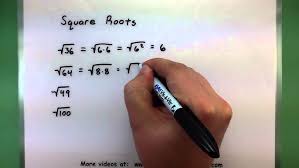 Square Roots
√36 = √6·6 = √6² = 6
√64 = √8·8 = √
√49
√100
More videos at: